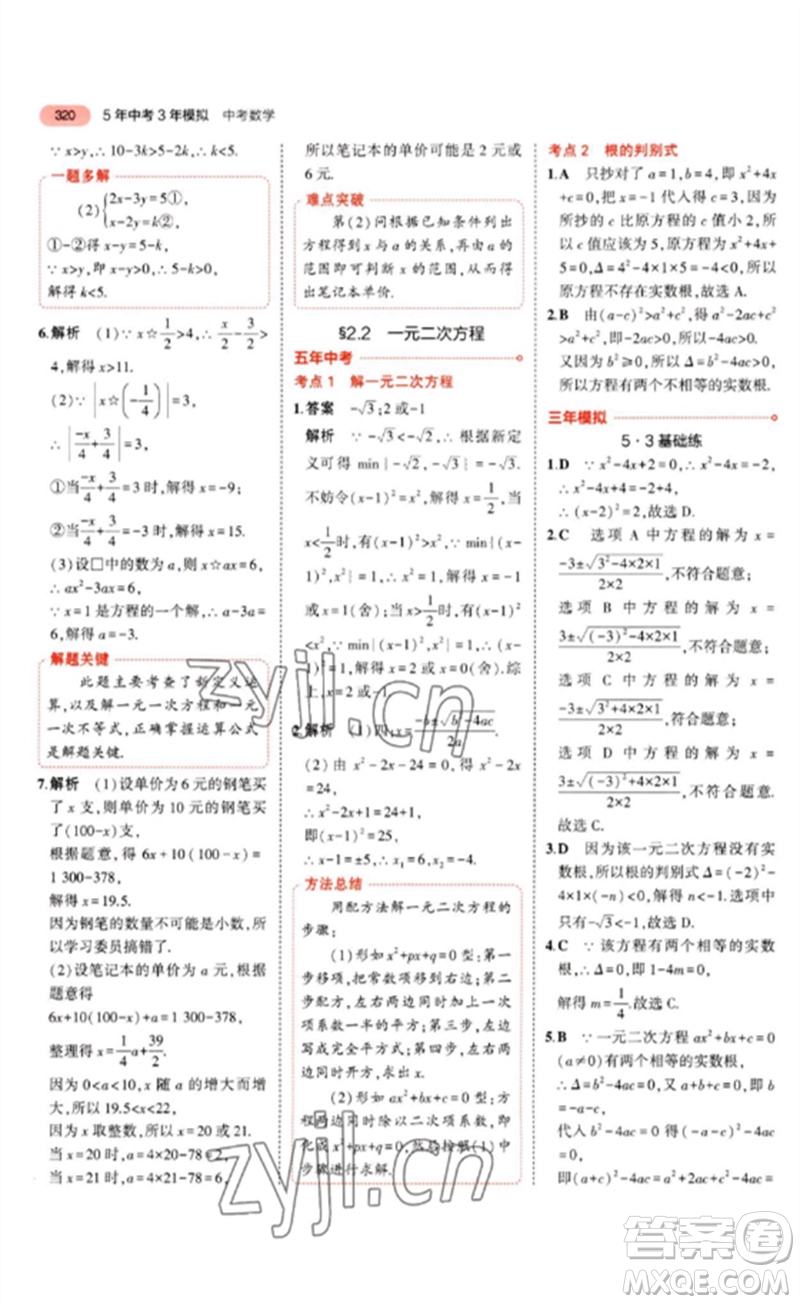 320 5年中考3年模拟 中考数学
∵ x>y,∴ 10-3k>5-2k,∴ k<5.
一题多解
(2){2x-3y=5①,
x-2y=k②,
①-②得 x-y=5-k,
∵ x>y,即 x-y>0,∴ 5-k>0,
解得 k<5.
6.解析 (1)∵ x☆1/2>4,∴ x/2-3/2>
4,解得 x>11.
(2)∵ |x☆(-1/4)|=3,
∴ |-x/4+3/4|=3,
①当-x/4+3/4=3时,解得 x=-9;
②当-x/4+3/4=-3时,解得 x=15.
(3)设□中的数为 a,则 x☆ax=6,
∴ ax²-3ax=6,
∵ x=1是方程的一个解,∴ a-3a=
6,解得 a=-3.
解题关键
此题主要考查了新定义运
算,以及解一元一次方程和一元
一次不等式,正确掌握运算公式
是解题关键.
7.解析 (1)设单价为 6 元的钢笔买
了 x 支,则单价为 10 元的钢笔买
了(100-x)支,
根据题意,得 6x+10(100-x)=
1 300-378,
解得 x=19.5.
因为钢笔的数量不可能是小数,所
以学习委员搞错了.
(2)设笔记本的单价为 a 元,根据
题意得
6x+10(100-x)+a=1 300-378,
整理得 x=1/4a+39/2,
因为 0<a<10,x 随 a 的增大而增大,
所以 19.5<x<22,
因为 x 取整数,所以 x=20 或 21.
当 x=20 时,a=4×20-78=2,
当 x=21 时,a=4×21-78=6,
所以笔记本的单价可能是 2 元或
6 元.
难点突破
第(2)问根据已知条件列出
方程得到 x 与 a 的关系,再由 a 的
范围即可判断 x 的范围,从而解
出笔记本单价.
§2.2 一元二次方程
五年中考
考点1 解一元二次方程
1.答案 -√3;2或-1
解析 ∵ -√3<-√2,∴ 根据新定
义可得 min{-√2,-√3}=-√3.
不妨令(x-1)²=x²,解得 x=1/2,当
x<1/2时,有(x-1)²>x²,∵ min{(x-
1)²,x²}=1,∴ x²=1,解得 x=-1
或 x=1(舍);当 x>1/2时,有(x-1)²
<x².∵ min{(x-1)²,x²}=1,∴ (x-
1)²=1,解得 x=2 或 x=0(舍).综
上,x=2 或 x=-1.
2.解析 (1)四;x=(-b±√(b²-4ac))/2a.
(2)由 x²-2x=24,得 x²-2x+1
=24,
∴ x²-2x+1=24+1,
即(x-1)²=25,
∴ x-1=±5,∴ x₁=6,x₂=-4.
方法总结
用配方法解一元二次方程的
步骤:
(1)形如 x²+px+q=0 型:第一
步移项,把常数项移到右边;第二
步配方,左右两边同时加上一次
项系数一半的平方;第三步,左边
写成完全平方式;第四步,直接开
方求出 x.
(2)形如 ax²+bx+c=0 型,方程
两边同时除以二次项系数,即
化成 x²+px+q=0,然后按照(1)中
步骤进行求解.
考点2 根的判别式
1.A 只抄对了 a=1,b=4,即 x²+4x
+c=0,把 x=-1 代入得 c=3,因为
所抄的 c 比原方程的 c 值小 2,所
以 c 值应该为 5,原方程为 x²+4x+
5=0,Δ=4²-4×1×5=-4<0,所以
原方程不存在实数根,故选 A.
2.B 由(a-c)²>a²+c²,得 a²-2ac+c²
>a²+c²,即-2ac>0,所以-4ac>0.
又因为 b²≥0,所以 b²-4ac>0,
所以方程有两个不相等的实数根.
三年模拟
5·3基础练
1.D ∵ x²-4x+2=0,∴ x²-4x=-2,
∴ x²-4x+4=-2+4,
∴ (x-2)²=2,故选 D.
2.C 选项 A 中方程的解为 x =
(-3±√(3²-4×2×1))/(2×2),不符合题意;
选项 B 中方程的解为 x =
(3±√((-3)²-4×2×1))/(2×2),不符合题意;
选项 C 中方程的解为 x =
(-3±√(3²+4×2×1))/(2×2),符合题意;
选项 D 中方程的解为 x =
(3±√((-3)²+4×2×1))/(2×2),不符合题意.
故选 C.
3.D 因为该一元二次方程没有实
数根,所以根的判别式 Δ=(-2)²-
4×1×(-n)<0,解得 n<-1.选项中
只有-√3<-1,故选 D.
4.C ∵ 该方程有两个相等的实数
根,∴ Δ=0,即 1-4m=0,
解得 m=1/4.故选 C.
5.B ∵ 一元二次方程 ax²+bx+c=0
(a≠0)有两个相等的实数根,
∴ Δ=b²-4ac=0,
代入 b²-4ac=0 得
即(a+c)²-4ac=a²+c²+2ac-4ac=
zyjl.cn
zyjl.cn
答案卷
MXQE.COM